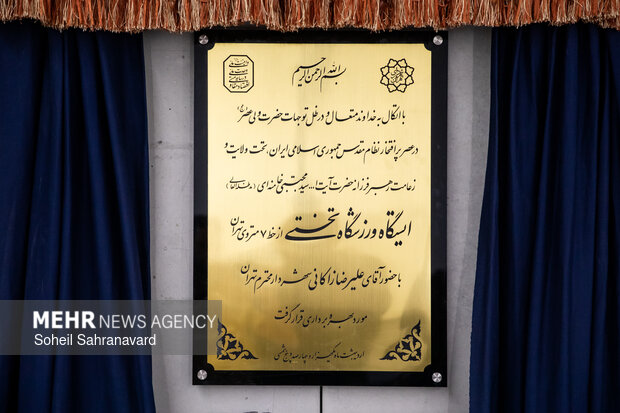 بسم الله الرحمن الرحیم
با اتکال به خداوند متعال و در ظل توجهات حضرت ولی عصر (عج)
در عصر پر افتخار نظام مقدس جمهوری اسلامی ایران، تحت ولایت و
زعامت رهبر فرزانه حضرت آیت ا... سید مجتبی خامنه ای (مدظله العالی)
ایستگاه ورزشگاه تختی از خط ۷ متروی تهران
با حضور آقای علیرضا زاکانی شهردار محترم تهران
مورد بهره برداری قرار گرفت
اردیبهشت ماه یکهزار و چهارصد و پنج شمسی
MEHR NEWS AGENCY
Soheil Sahranavard